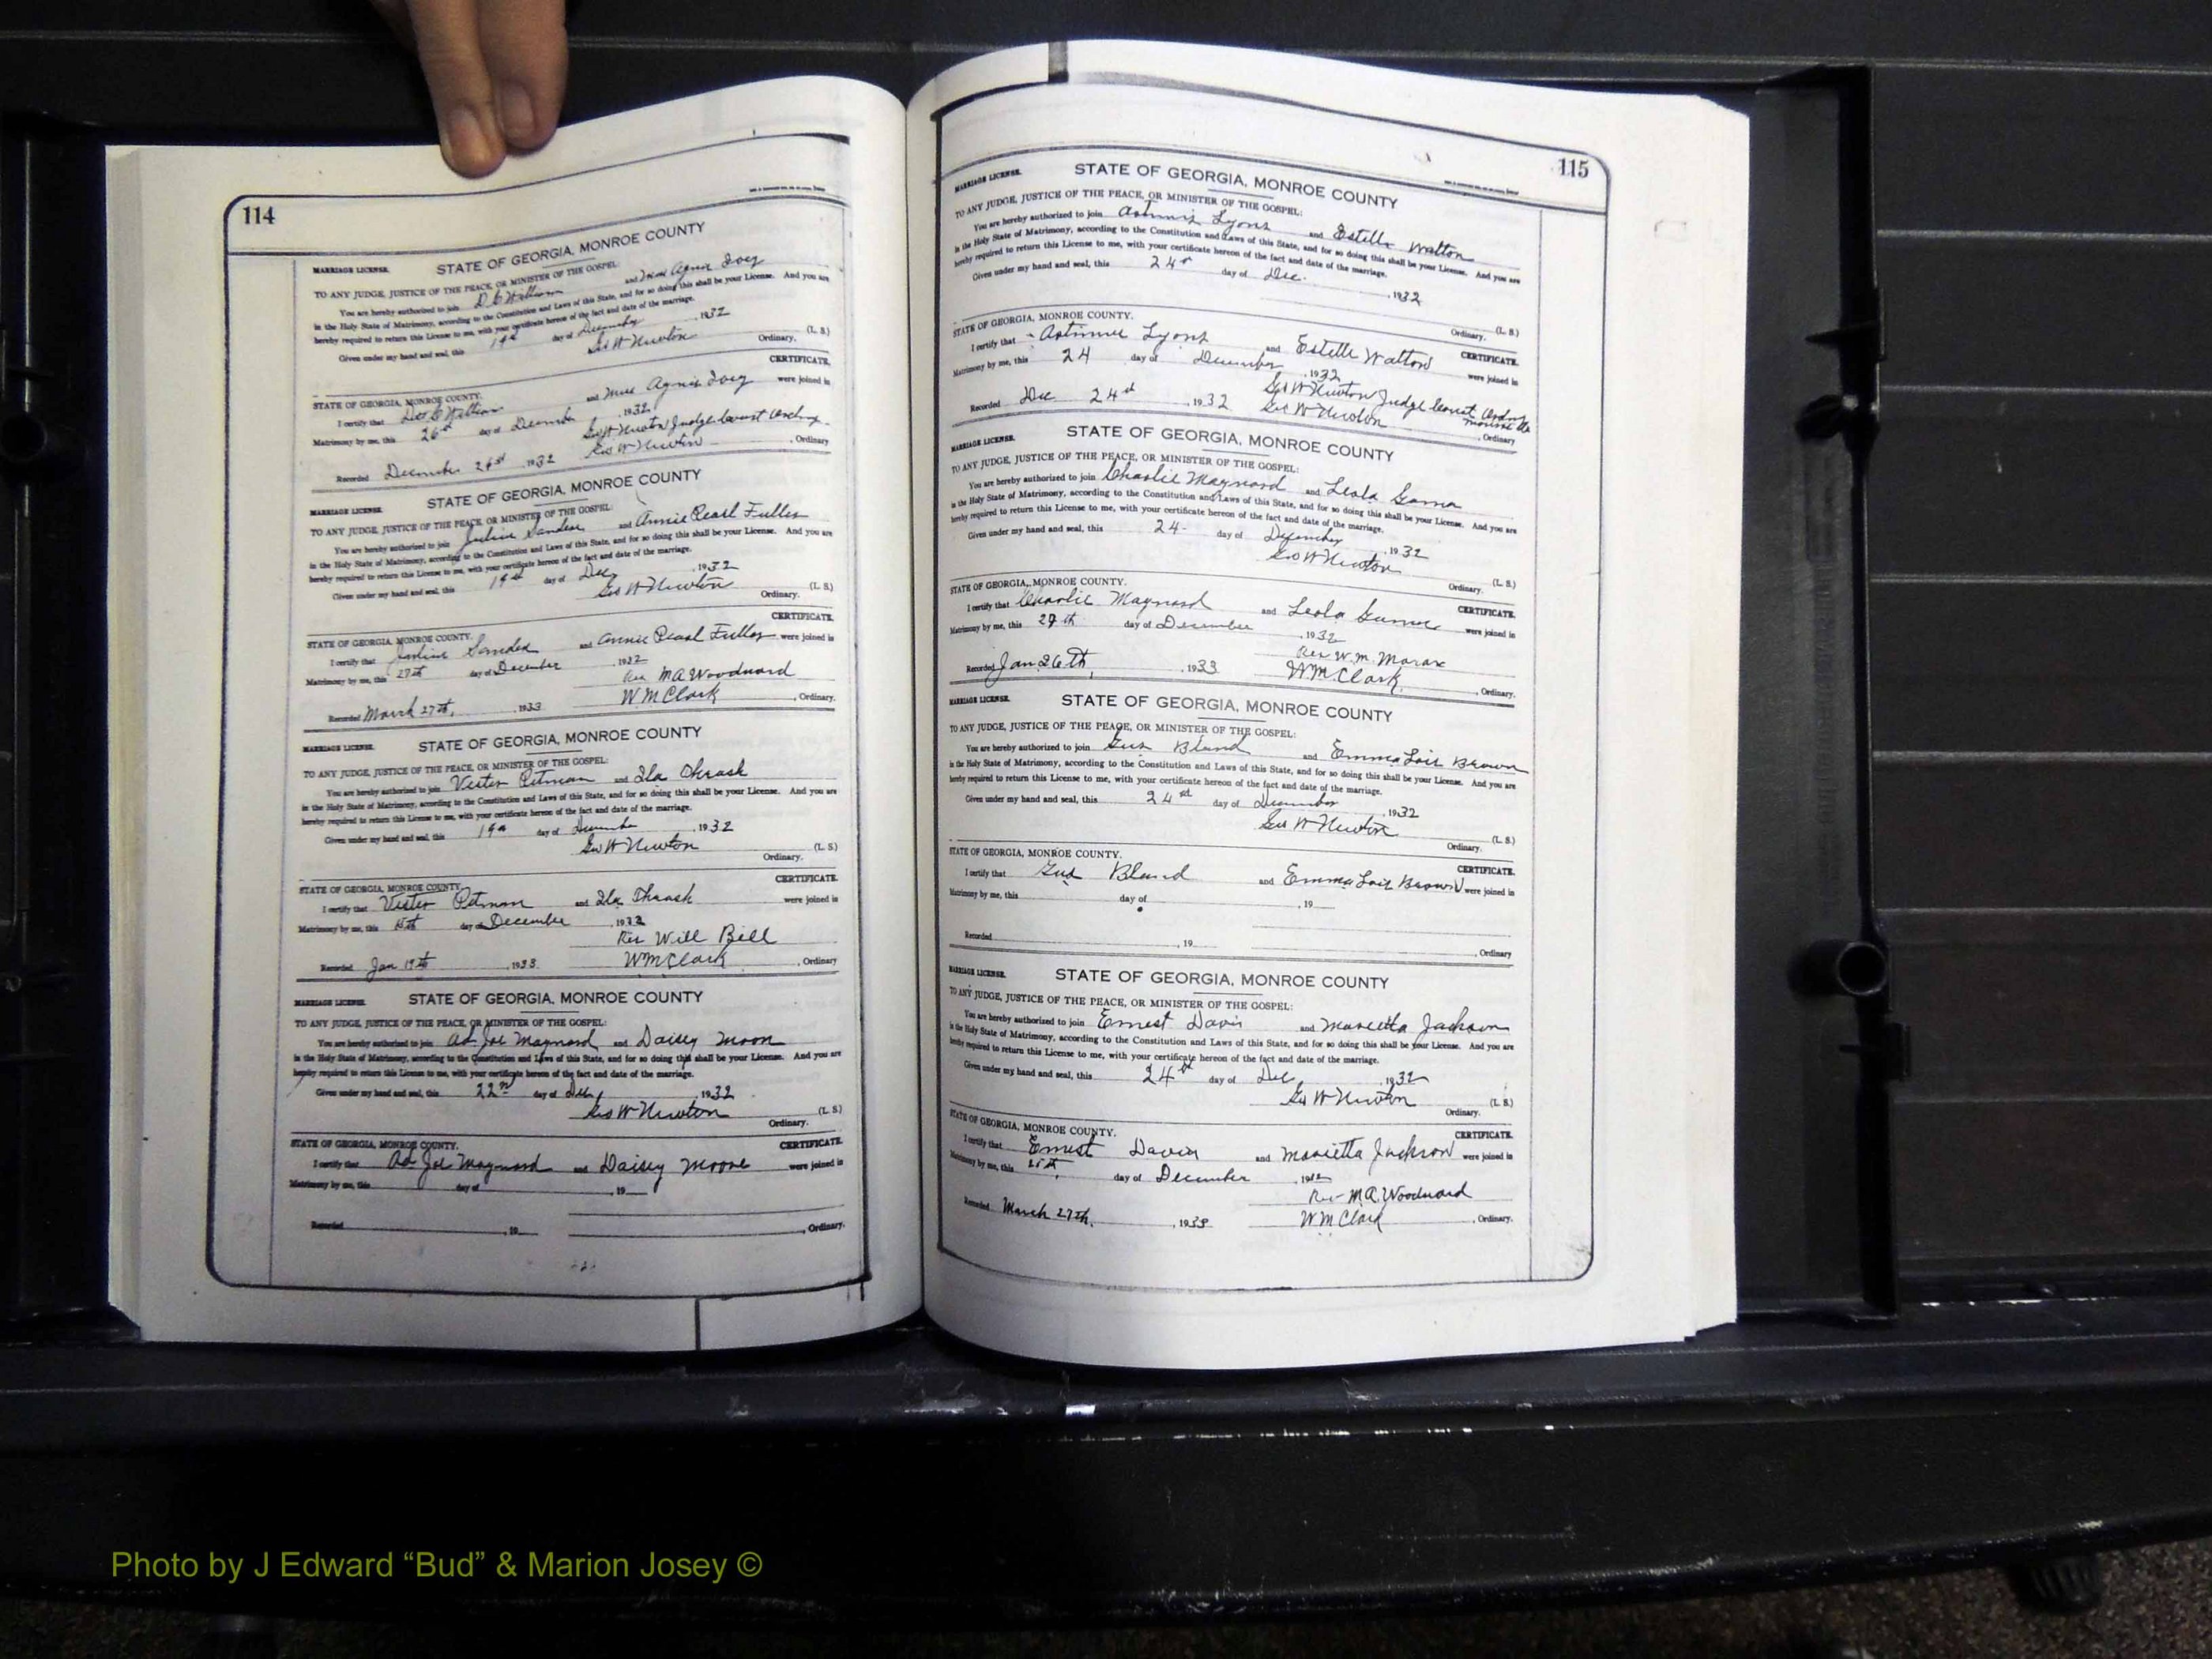 114
MARRIAGE LICENSE. STATE OF GEORGIA, MONROE COUNTY
TO ANY JUDGE, JUSTICE OF THE PEACE, OR MINISTER OF THE GOSPEL:
You are hereby authorized to join and Miss Agnes
in the Holy State of Matrimony, according to the Constitution and Laws of this State, and for so doing this shall be your License. And you are
hereby required to return this License to me, with your certificate hereon of the fact and date of the marriage.
Given under my hand and seal, this 19th day of December, 1932
Geo W Newton (L. S.)
Ordinary.
CERTIFICATE.
STATE OF GEORGIA, MONROE COUNTY.
I certify that and Miss Agnes were joined in
Matrimony by me, this 26th day of December, 1932
Geo W Newton Judge Court Ordinary
Recorded December, 1932 Geo W Newton, Ordinary
MARRIAGE LICENSE. STATE OF GEORGIA, MONROE COUNTY
TO ANY JUDGE, JUSTICE OF THE PEACE, OR MINISTER OF THE GOSPEL:
You are hereby authorized to join and Annie Pearl Fuller
in the Holy State of Matrimony, according to the Constitution and Laws of this State, and for so doing this shall be your License. And you are
hereby required to return this License to me, with your certificate hereon of the fact and date of the marriage.
Given under my hand and seal, this 19th day of Dec, 1932
Geo W Newton (L. S.)
Ordinary.
CERTIFICATE.
STATE OF GEORGIA, MONROE COUNTY.
I certify that and Annie Pearl Fuller were joined in
Matrimony by me, this 27th day of December, 1932
Rev M A Woodward
Recorded March 27th, 1933 W M Clark, Ordinary.
MARRIAGE LICENSE. STATE OF GEORGIA, MONROE COUNTY
TO ANY JUDGE, JUSTICE OF THE PEACE, OR MINISTER OF THE GOSPEL:
You are hereby authorized to join Vester Pitman and Ila Thrash
in the Holy State of Matrimony, according to the Constitution and Laws of this State, and for so doing this shall be your License. And you are
hereby required to return this License to me, with your certificate hereon of the fact and date of the marriage.
Given under my hand and seal, this 19th day of December, 1932
Geo W Newton (L. S.)
Ordinary.
CERTIFICATE.
STATE OF GEORGIA, MONROE COUNTY.
I certify that Vester Pitman and Ila Thrash were joined in
Matrimony by me, this day of December, 1932
Rev Will Bell
Recorded Jan 19th, 1933 W M Clark, Ordinary
MARRIAGE LICENSE. STATE OF GEORGIA, MONROE COUNTY
TO ANY JUDGE, JUSTICE OF THE PEACE, OR MINISTER OF THE GOSPEL:
You are hereby authorized to join Ad Joe Maynard and Daisey Moon
in the Holy State of Matrimony, according to the Constitution and Laws of this State, and for so doing this shall be your License. And you are
hereby required to return this License to me, with your certificate hereon of the fact and date of the marriage.
Given under my hand and seal, this 22nd day of Dec, 1932
Geo W Newton (L. S.)
Ordinary.
STATE OF GEORGIA, MONROE COUNTY. CERTIFICATE.
I certify that Ad Joe Maynard and Daisey Moore were joined in
Matrimony by me, this day of, 19
Recorded, 19, Ordinary.
115
MARRIAGE LICENSE. STATE OF GEORGIA, MONROE COUNTY
TO ANY JUDGE, JUSTICE OF THE PEACE, OR MINISTER OF THE GOSPEL:
You are hereby authorized to join Lyons and Estelle Walton
in the Holy State of Matrimony, according to the Constitution and Laws of this State, and for so doing this shall be your License. And you are
hereby required to return this License to me, with your certificate hereon of the fact and date of the marriage.
Given under my hand and seal, this 24th day of Dec., 1932
(L. S.)
Ordinary.
STATE OF GEORGIA, MONROE COUNTY. CERTIFICATE.
I certify that Lyons and Estelle Walton were joined in
Matrimony by me, this 24 day of December, 1932
Geo W Newton Judge Court Ordinary
Recorded Dec 24th, 1932 Geo W Newton, Ordinary
MARRIAGE LICENSE. STATE OF GEORGIA, MONROE COUNTY
TO ANY JUDGE, JUSTICE OF THE PEACE, OR MINISTER OF THE GOSPEL:
You are hereby authorized to join Charlie Maynard and Leola
in the Holy State of Matrimony, according to the Constitution and Laws of this State, and for so doing this shall be your License. And you are
hereby required to return this License to me, with your certificate hereon of the fact and date of the marriage.
Given under my hand and seal, this 24 day of December, 1932
Geo W Newton (L. S.)
Ordinary.
STATE OF GEORGIA, MONROE COUNTY. CERTIFICATE.
I certify that Charlie Maynard and Leola were joined in
Matrimony by me, this day of December, 1932
Rev W.M.
Recorded Jan 26th, 1933 W.M. Clark, Ordinary.
MARRIAGE LICENSE. STATE OF GEORGIA, MONROE COUNTY
TO ANY JUDGE, JUSTICE OF THE PEACE, OR MINISTER OF THE GOSPEL:
You are hereby authorized to join Gus Bland and Emma Lois Brown
in the Holy State of Matrimony, according to the Constitution and Laws of this State, and for so doing this shall be your License. And you are
hereby required to return this License to me, with your certificate hereon of the fact and date of the marriage.
Given under my hand and seal, this 24th day of December, 1932
Geo W Newton (L. S.)
Ordinary.
STATE OF GEORGIA, MONROE COUNTY. CERTIFICATE.
I certify that Gus Bland and Emma Lois Brown were joined in
Matrimony by me, this day of, 19
Recorded, 19, Ordinary
MARRIAGE LICENSE. STATE OF GEORGIA, MONROE COUNTY
TO ANY JUDGE, JUSTICE OF THE PEACE, OR MINISTER OF THE GOSPEL:
You are hereby authorized to join Ernest Davis and Marietta Jackson
in the Holy State of Matrimony, according to the Constitution and Laws of this State, and for so doing this shall be your License. And you are
hereby required to return this License to me, with your certificate hereon of the fact and date of the marriage.
Given under my hand and seal, this 24th day of Dec, 1932
Geo W Newton (L. S.)
Ordinary.
STATE OF GEORGIA, MONROE COUNTY. CERTIFICATE.
I certify that Ernest Davis and Marietta Jackson were joined in
Matrimony by me, this 25th day of December, 1932
Rev M A. Woodward
Recorded March 27th, 1933 W M Clark, Ordinary.
Photo by J Edward “Bud” & Marion Josey ©